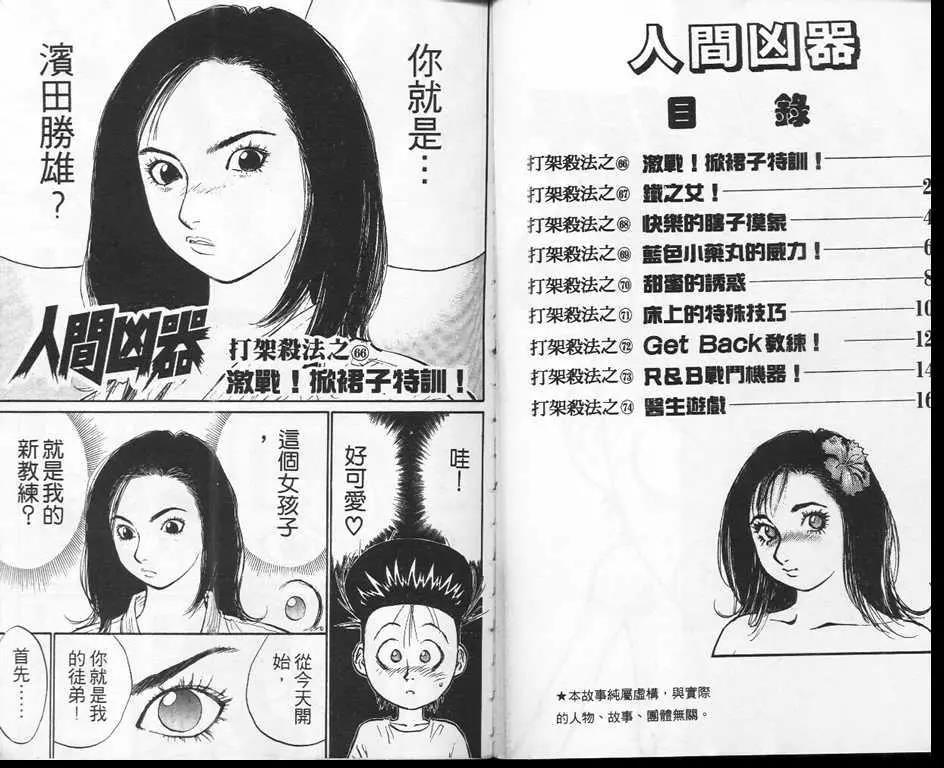 人間凶器
目 錄
打架殺法之66 激戰！掀裙子特訓！
打架殺法之67 鐵之女！ 2
打架殺法之68 快樂的瞎子摸象 4
打架殺法之69 藍色小藥丸的威力！ 6
打架殺法之70 甜蜜的誘惑 8
打架殺法之71 床上的特殊技巧 10
打架殺法之72 Get Back教練！ 12
打架殺法之73 R&B戰鬥機器！ 14
打架殺法之74 醫生遊戲 16
★本故事純屬虛構，與實際
的人物、故事、團體無關。
你就是…
濱田勝雄？
人間凶器
打架殺法之66
激戰！掀裙子特訓！
哇！
好可愛♡
這個女孩子
，
就是我的
新教練？
從今天開
始，
你就是我
的徒弟！
首先……